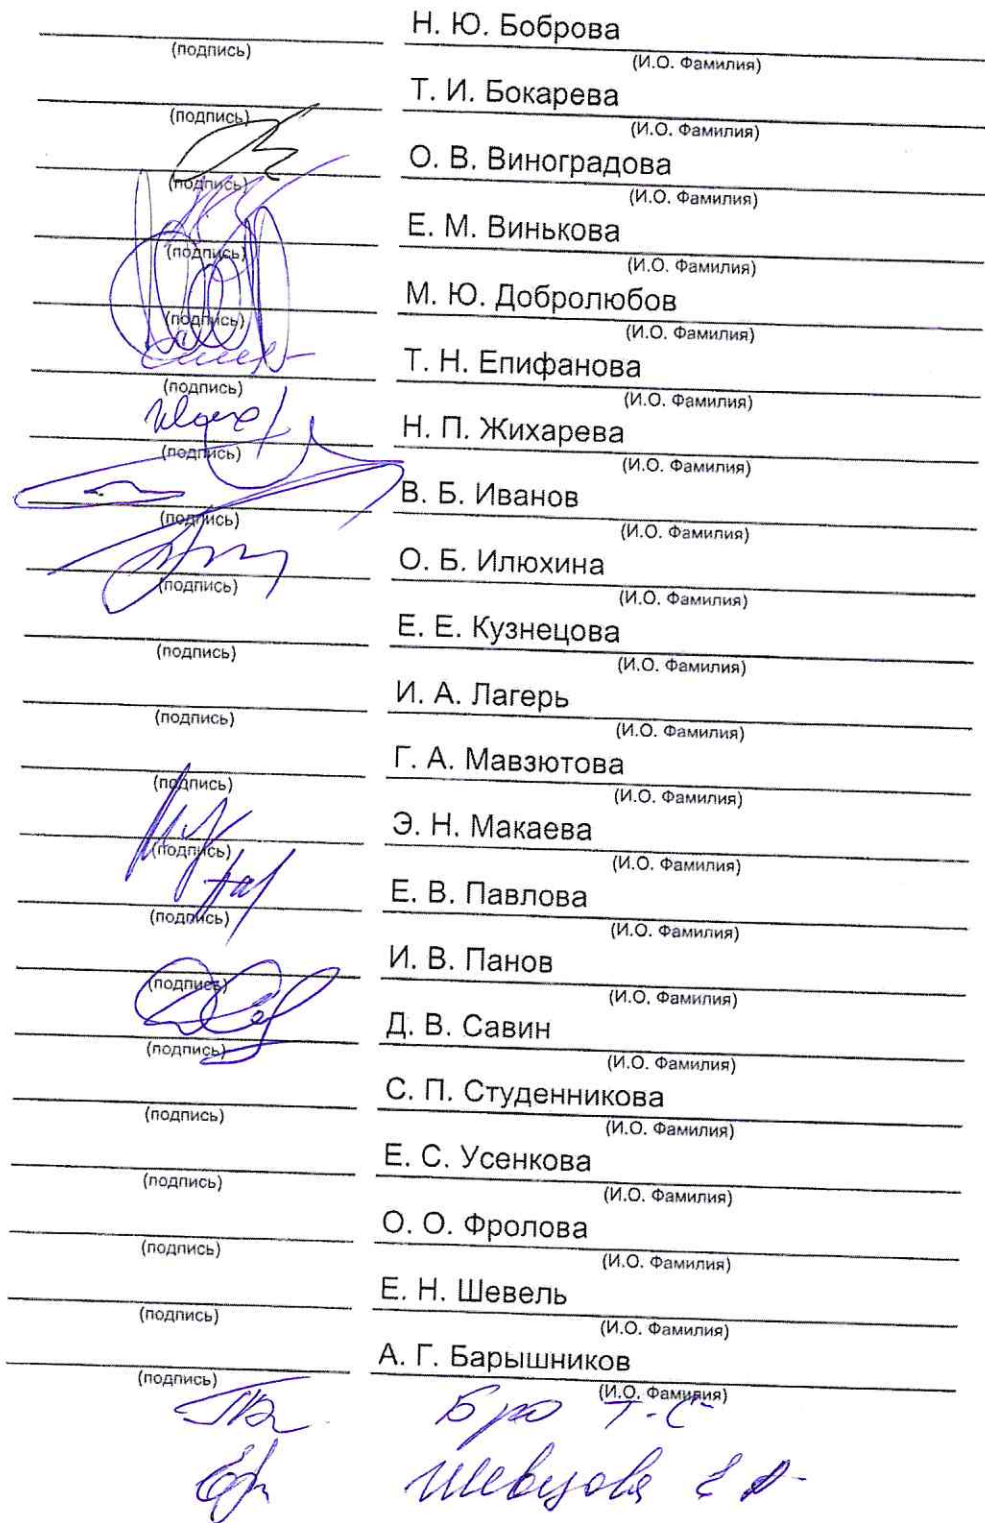 Н. Ю. Боброва
(подпись) (И.О. Фамилия)
Т. И. Бокарева
(подпись) (И.О. Фамилия)
О. В. Виноградова
(подпись) (И.О. Фамилия)
Е. М. Винькова
(подпись) (И.О. Фамилия)
М. Ю. Добролюбов
(подпись) (И.О. Фамилия)
Т. Н. Епифанова
(подпись) (И.О. Фамилия)
Н. П. Жихарева
(подпись) (И.О. Фамилия)
В. Б. Иванов
(подпись) (И.О. Фамилия)
О. Б. Илюхина
(подпись) (И.О. Фамилия)
Е. Е. Кузнецова
(подпись) (И.О. Фамилия)
И. А. Лагерь
(подпись) (И.О. Фамилия)
Г. А. Мавзютова
(подпись) (И.О. Фамилия)
Э. Н. Макаева
(подпись) (И.О. Фамилия)
Е. В. Павлова
(подпись) (И.О. Фамилия)
И. В. Панов
(подпись) (И.О. Фамилия)
Д. В. Савин
(подпись) (И.О. Фамилия)
С. П. Студенникова
(подпись) (И.О. Фамилия)
Е. С. Усенкова
(подпись) (И.О. Фамилия)
О. О. Фролова
(подпись) (И.О. Фамилия)
Е. Н. Шевель
(подпись) (И.О. Фамилия)
А. Г. Барышников
(подпись) (И.О. Фамилия)
Т. С.
Шевцова Е